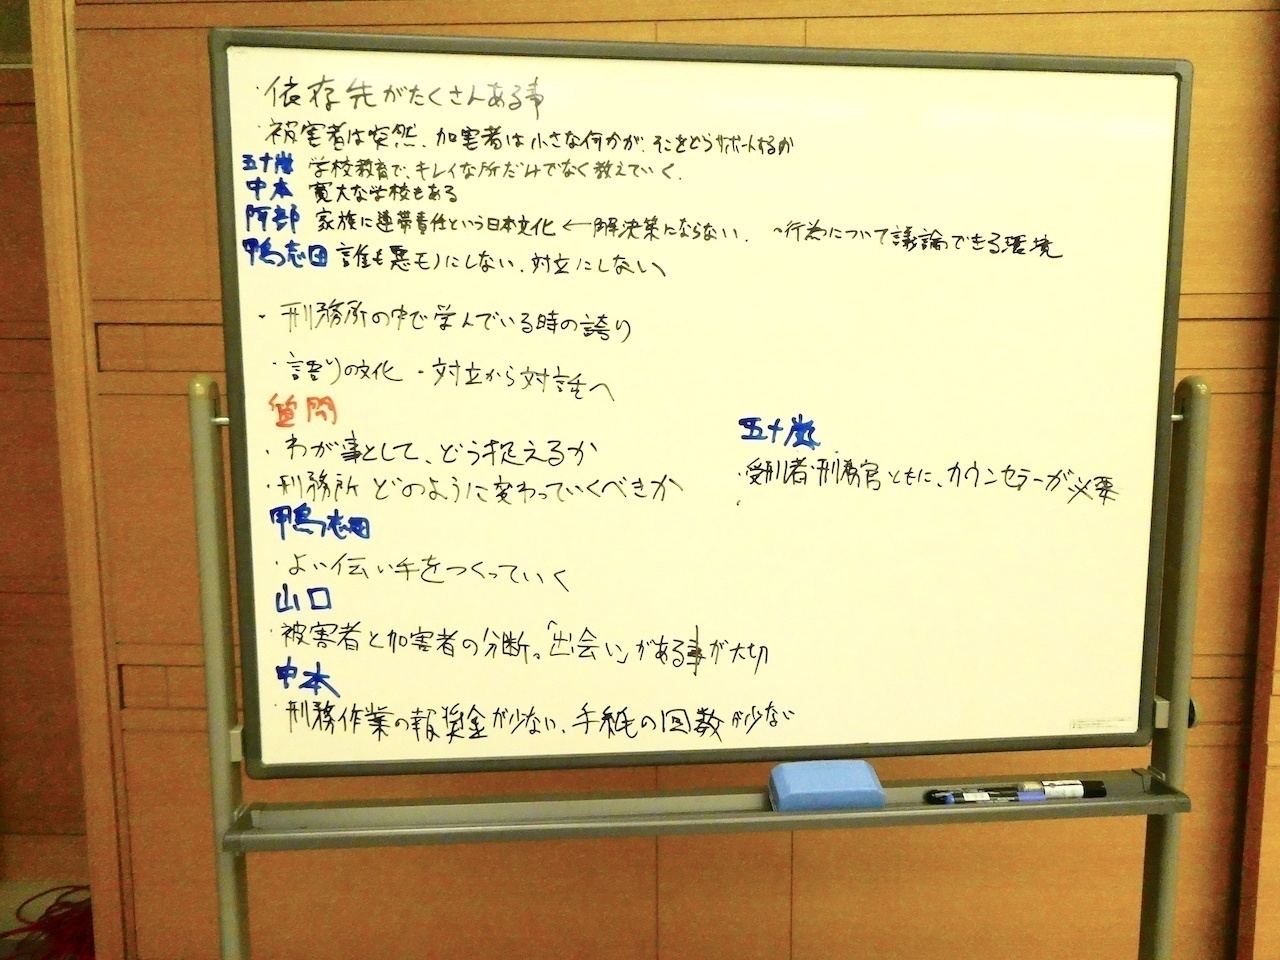 ・依存先がたくさんある事
・被害者は突然、加害者は小さな何かが、そこをどうサポートするか
五十嵐 学校教育で、キレイな所だけでなく教えていく。
中本 寛大な学校もある
阿部 家族に連帯責任という日本文化 ← 解決策にならない。 ～行為について議論できる環境
鴨志田 誰も悪モノにしない、対立にしない
・刑務所の中で学んでいる時の誇り
・語りの文化 ・対立から対話へ
質問
・わが事として、どう捉えるか
・刑務所 どのように変わっていくべきか
鴨志田
・よい伝い手をつくっていく
山口
・被害者と加害者の分断。「出会い」がある事が大切
中本
・刑務作業の報奨金が少ない、手紙の回数が少ない
五十嵐
・受刑者・刑務官ともに、カウンセラーが必要